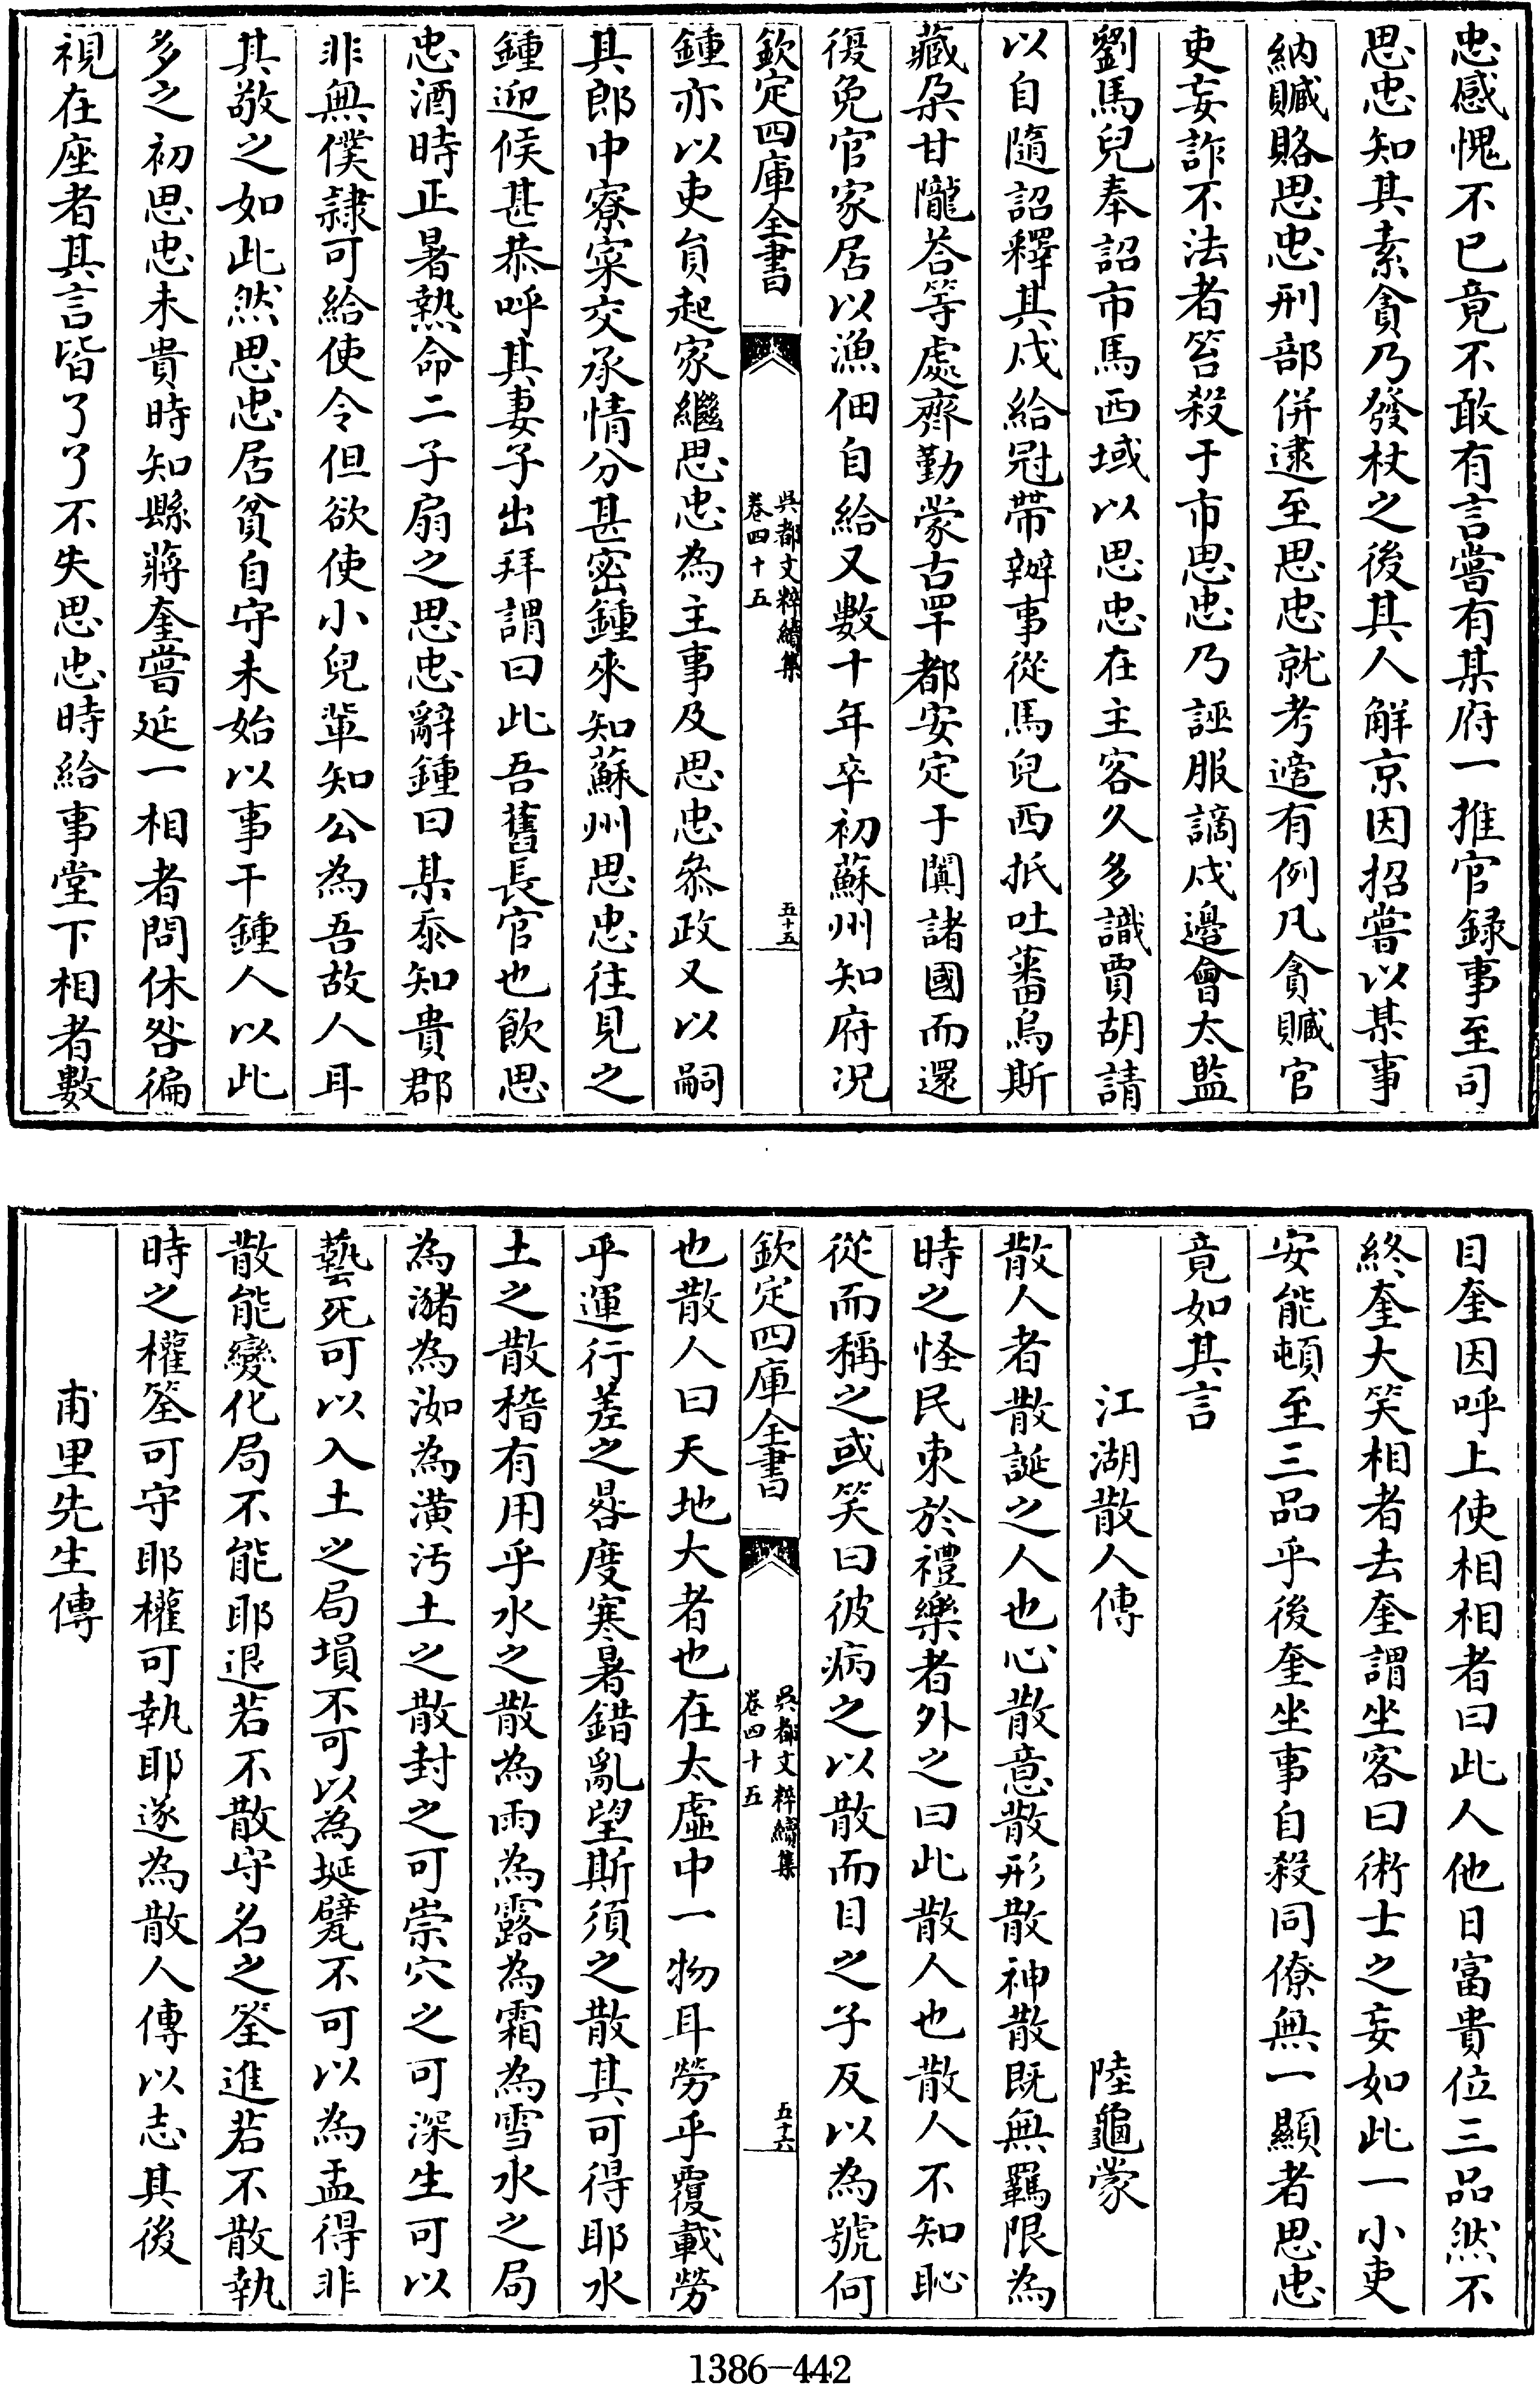 忠感愧不已竟不敢有言嘗有某府一推官録事至司
思忠知其素貪乃發杖之後其人解京因招嘗以某事
納贓賂思忠刑部併逮至思忠就考遣有例凡貪贓官
吏妄詐不法者笞殺于市思忠乃誣服謫戍邊會太監
劉馬兒奉詔市馬西域以思忠在主客久多識賈胡請
以自隨詔釋其戍給冠帶辦事從馬兒西抵吐蕃烏斯
藏朶甘隴荅等處齊勤蒙古罕都安定于闐諸國而還
復免官家居以漁佃自給又數十年卒初蘇州知府况
欽定四庫全書
吳都文粹續集
卷四十五
五十五
鍾亦以吏員起家繼思忠為主事及思忠叅政又以嗣
其郎中寮寀交承情分甚密鍾來知蘇州思忠往見之
鍾迎候甚恭呼其妻子出拜謂曰此吾舊長官也飲思
忠酒時正暑熱命二子扇之思忠辭鍾曰某忝知貴郡
非無僕隷可給使令但欲使小兒輩知公為吾故人耳
其敬之如此然思忠居貧自守未始以事干鍾人以此
多之初思忠未貴時知縣蔣奎嘗延一相者問休咎徧
視在座者其言皆了了不失思忠時給事堂下相者數
目奎因呼上使相相者曰此人他日富貴位三品然不
終奎大笑相者去奎謂坐客曰術士之妄如此一小吏
安能頓至三品乎後奎坐事自殺同僚無一顯者思忠
竟如其言
江湖散人傳 陸龜蒙
散人者散誕之人也心散意散形散神散既無羈限為
時之怪民束於禮樂者外之曰此散人也散人不知恥
從而稱之或笑曰彼病之以散而目之子反以為號何
欽定四庫全書
吳都文粹續集
卷四十五
五十六
也散人曰天地大者也在太虛中一物耳勞乎覆載勞
乎運行差之晷度寒暑錯亂望斯須之散其可得耶水
土之散稽有用乎水之散為雨為露為霜為雪水之局
為潴為洳為潢汚土之散封之可崇穴之可深生可以
藝死可以入土之局塤不可以為埏甓不可以為盂得非
散能變化局不能耶退若不散守名之筌進若不散執
時之權筌可守耶權可執耶遂為散人傳以志其後
甫里先生傳
1386-442